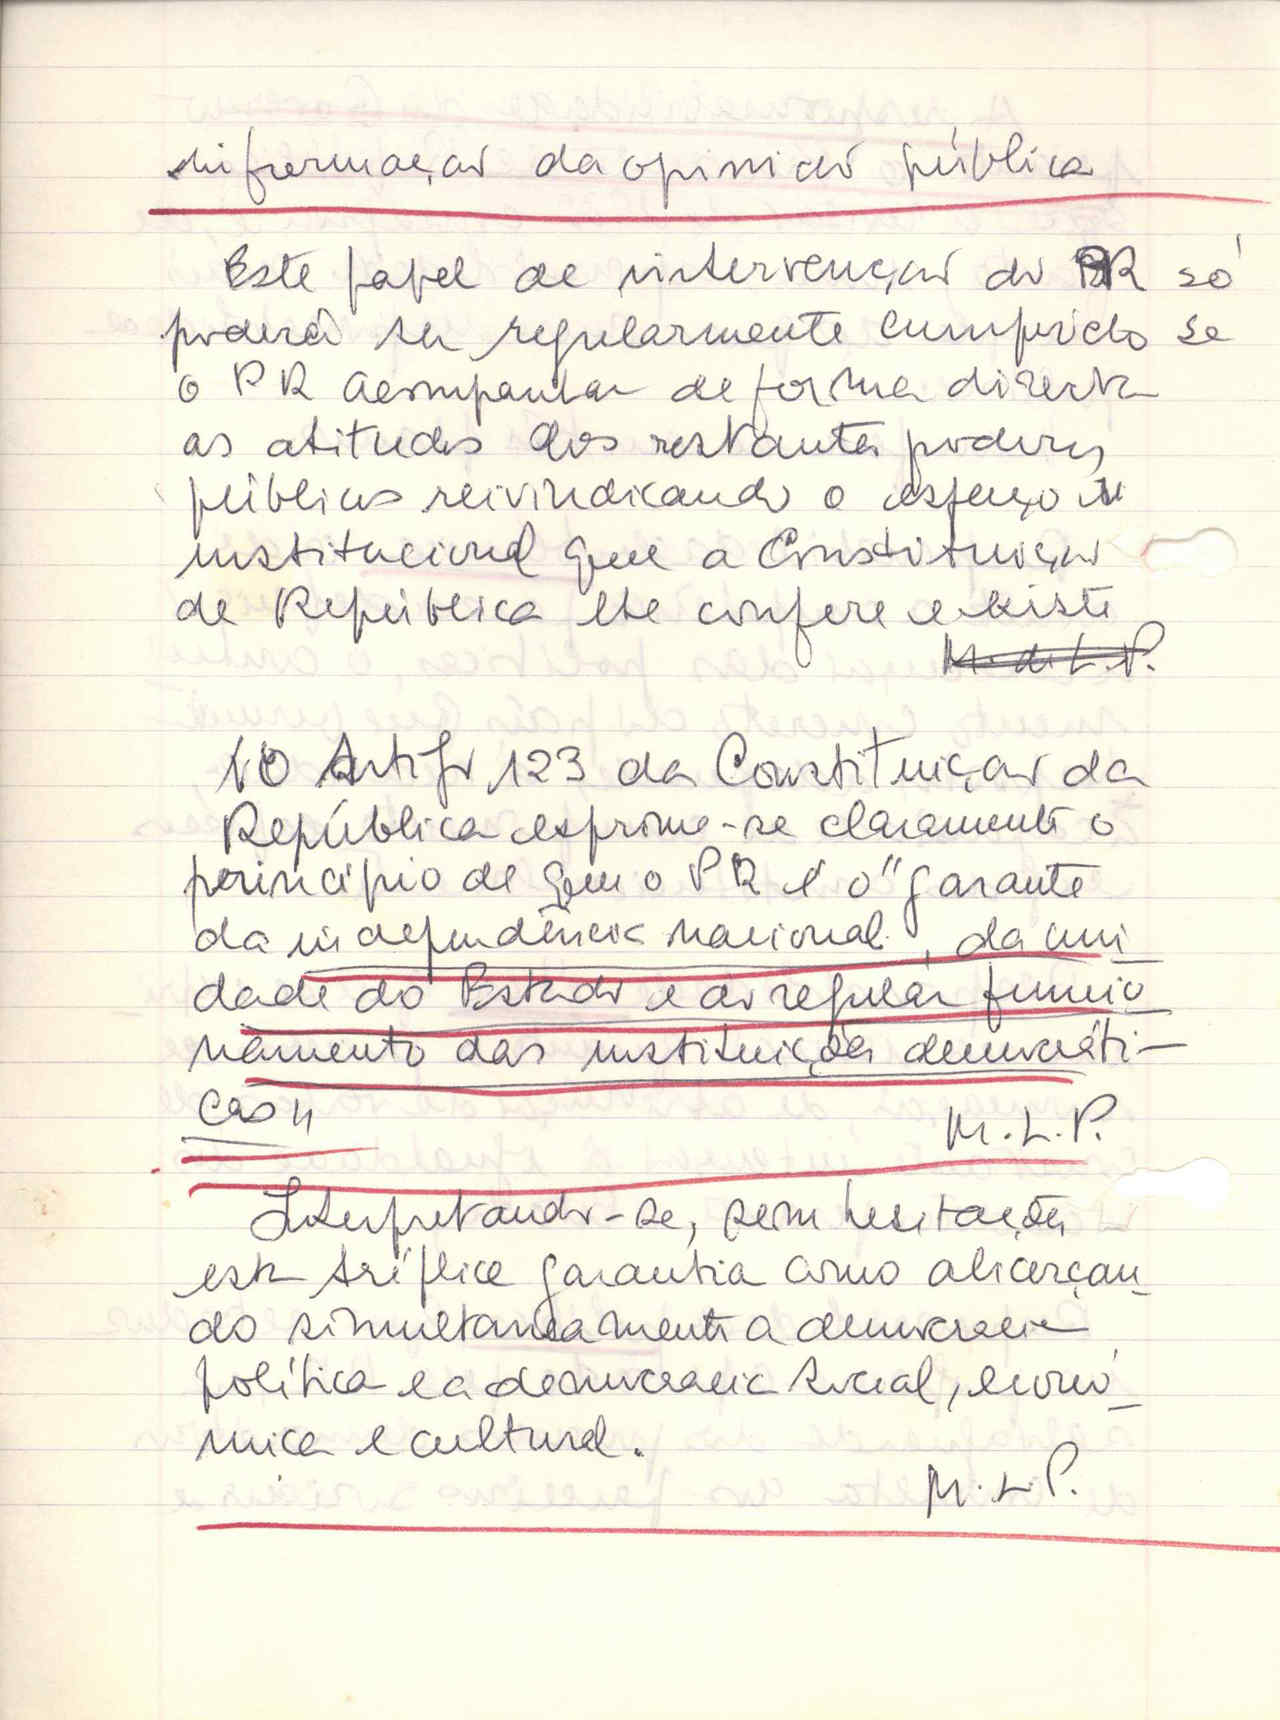 informação da opinião pública
Este papel de intervenção do PR só
poderá ser regularmente cumprido se
o PR acompanhar de forma directa
as atitudes dos restantes poderes
públicos reivindicando o espaço
institucional que a Constituição
de República lhe confere existe
M. de L. P.
No Artigo 123 da Constituição da
República exprime-se claramente o
princípio de que o PR é o "garante
da independência nacional, da uni
dade do Estado e do regular funcio
namento das instituições democráti-
cas"
M. L. P.
Interpretando-se, sem hesitações
esta tríplice garantia como alicerçan-
do simultaneamente a democracia
política e a democracia social, econó-
mica e cultural.
M. L. P.